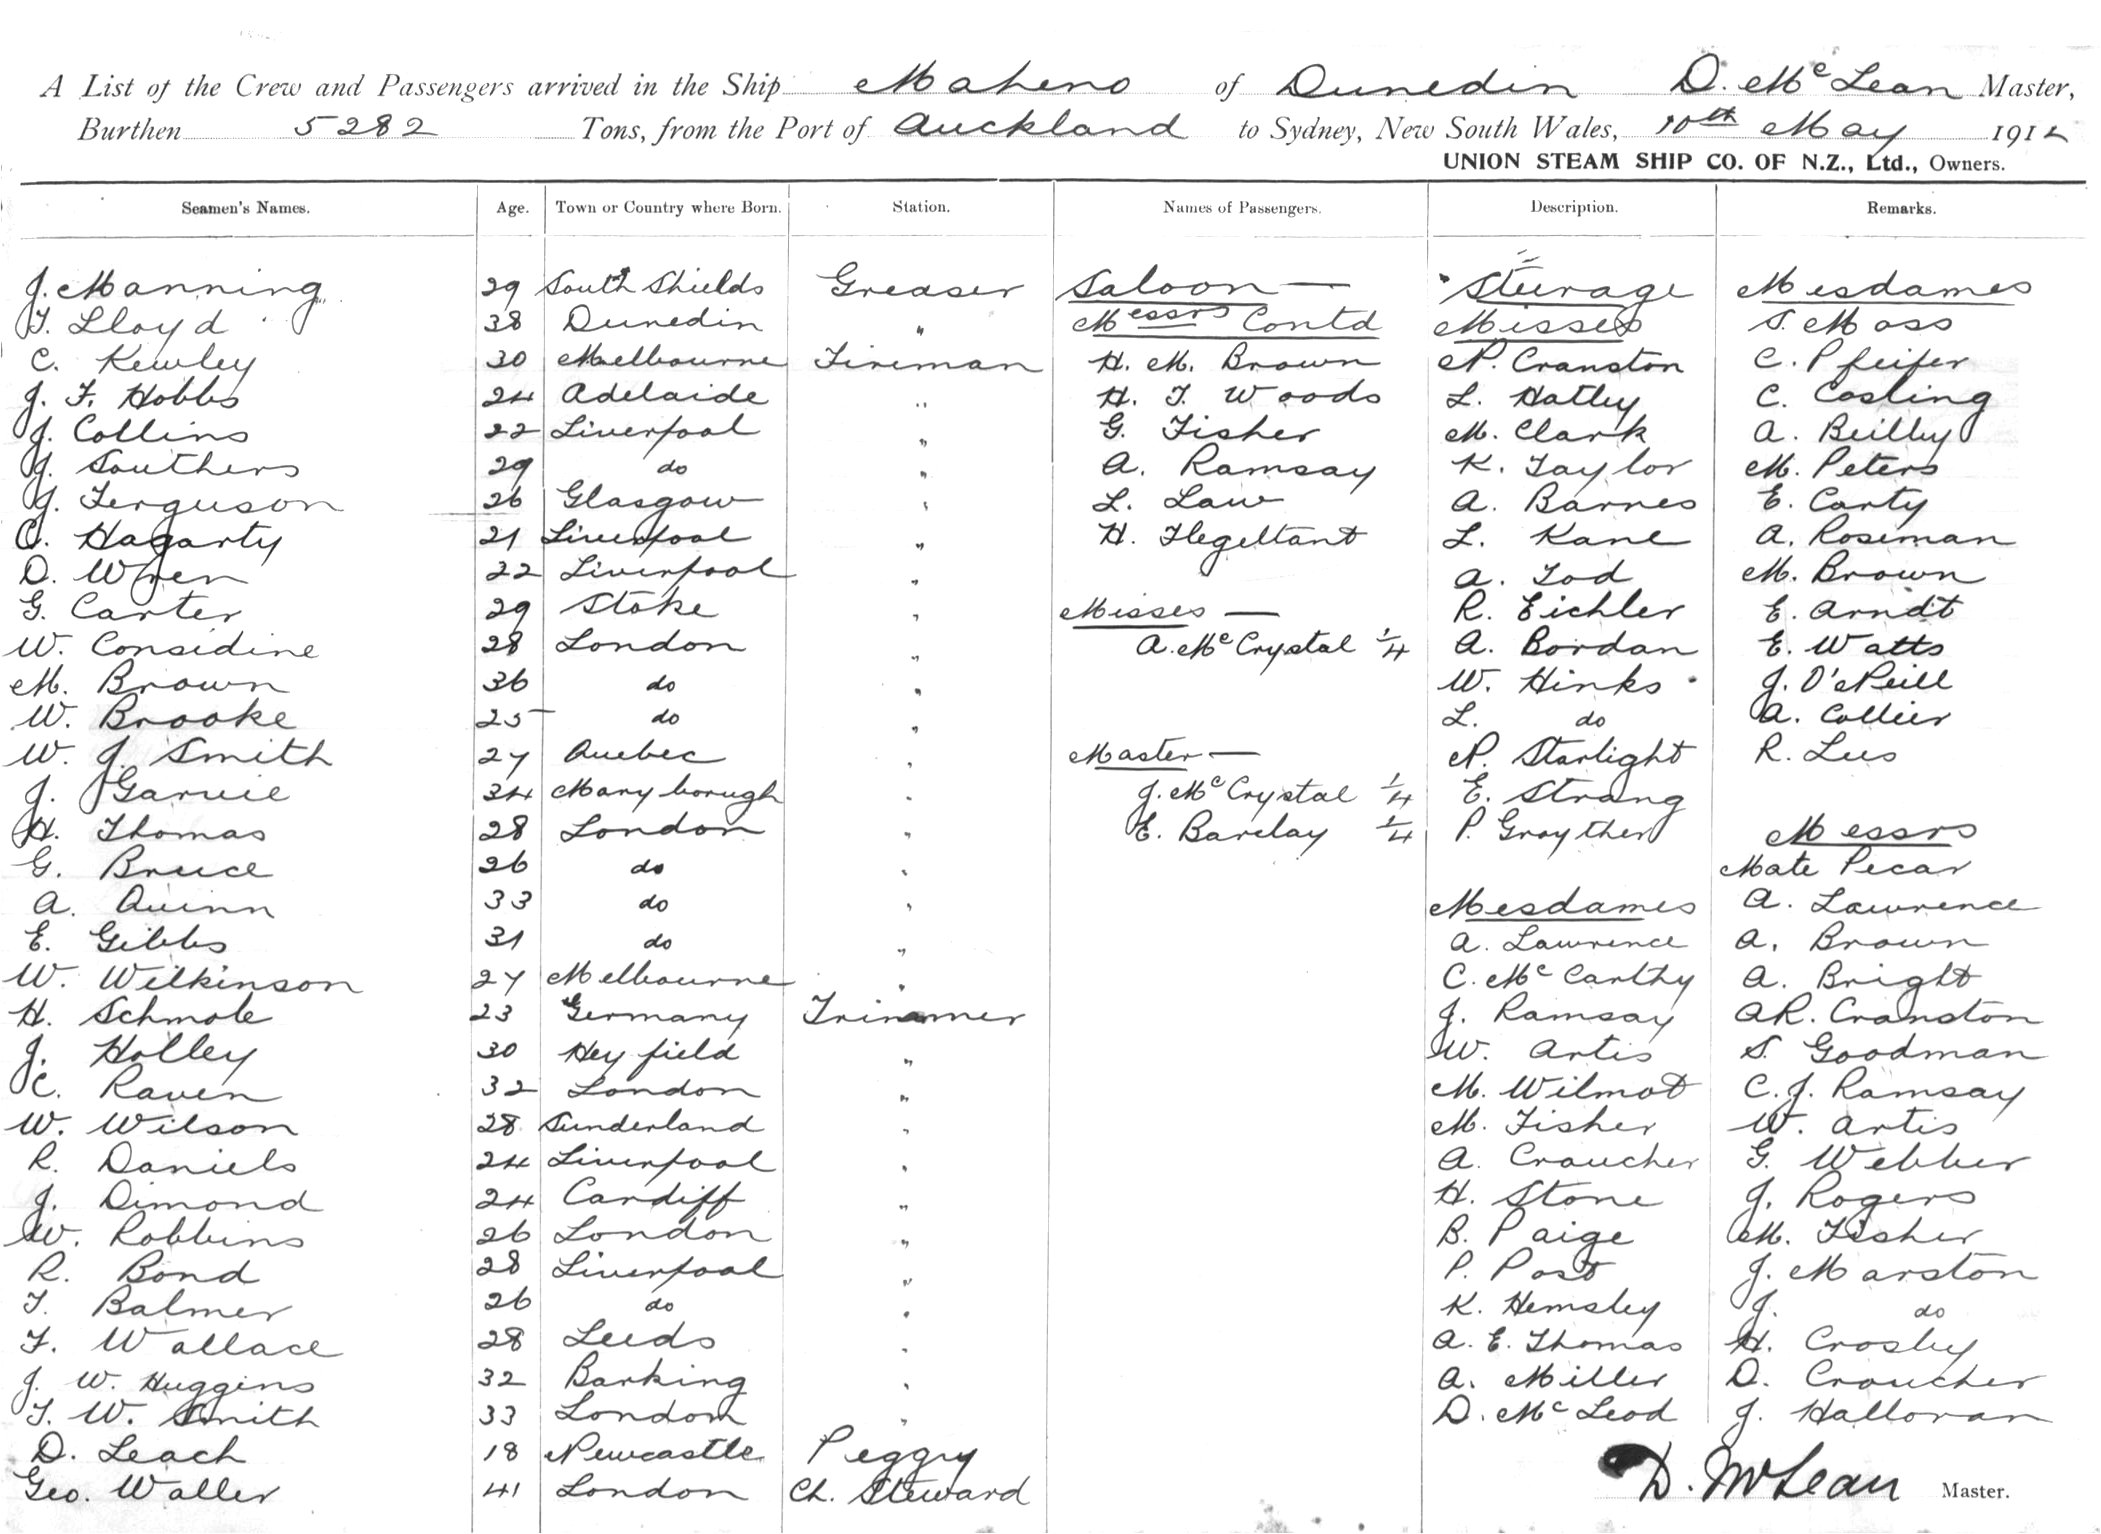 A List of the Crew and Passengers arrived in the Ship Maheno of Dunedin D. McLean Master,
Burthen 5282 Tons, from the Port of Auckland to Sydney, New South Wales, 10th May 1912
UNION STEAM SHIP CO. OF N.Z., Ltd., Owners.
Seamen's Names. Age. Town or Country where Born. Station. Names of Passengers. Description. Remarks.
J. Manning 29 South Shields Greaser Saloon — Steerage Mesdames
T. Lloyd 38 Dunedin " Messrs Contd Misses S. Moss
C. Kewley 30 Melbourne Fireman H. M. Brown N. Cranston C. Pfeifer
J. F. Hobbs 24 Adelaide " H. T. Woods L. Hatley C. Cosling
J. Collins 22 Liverpool " G. Fisher M. Clark A. Beilby
J. Southers 29 do " A. Ramsay K. Taylor M. Peters
J. Ferguson 26 Glasgow " L. Law A. Barnes E. Carty
C. Hagarty 21 Liverpool " H. Flegeltant L. Kane A. Roseman
D. Wren 22 Liverpool " A. Tod M. Brown
G. Carter 29 Stoke " Misses — R. Eichler E. Arndt
W. Considine 28 London " A. McCrystal 1/4 A. Bordan E. Watts
M. Brown 36 do " W. Hinks J. O'Neill
W. Brooke 25 do " L. do A. Collier
W. J. Smith 27 Quebec " Master — N. Starlight R. Lees
J. Garvie 34 Maryborough " J. McCrystal 1/4 E. Strang
H. Thomas 28 London " E. Barclay 1/4 P. Grayther Messrs
G. Bruce 26 do " Mate Pecar
A. Quinn 33 do " Mesdames A. Lawrence
E. Gibbs 31 do " A. Lawrence A. Brown
W. Wilkinson 27 Melbourne " C. McCarthy A. Bright
H. Schmole 23 Germany Trimmer J. Ramsay A.R. Cranston
J. Holley 30 Heyfield " W. Artis S. Goodman
C. Raven 32 London " M. Wilmot C. J. Ramsay
W. Wilson 28 Sunderland " M. Fisher W. Artis
R. Daniels 24 Liverpool " A. Croucher G. Webber
J. Dimond 24 Cardiff " H. Stone J. Rogers
W. Robbins 26 London " B. Paige M. Fisher
R. Bond 28 Liverpool " P. Post J. Marston
T. Balmer 26 do " K. Hemsley J. do
F. Wallace 28 Leeds " A. E. Thomas H. Crosby
J. W. Huggins 32 Barking " A. Miller D. Croucher
T. W. Smith 33 London " D. McLeod J. Halloran
D. Leach 18 Newcastle Peggy
Geo. Waller 41 London Ch. Steward
D. McLean Master.